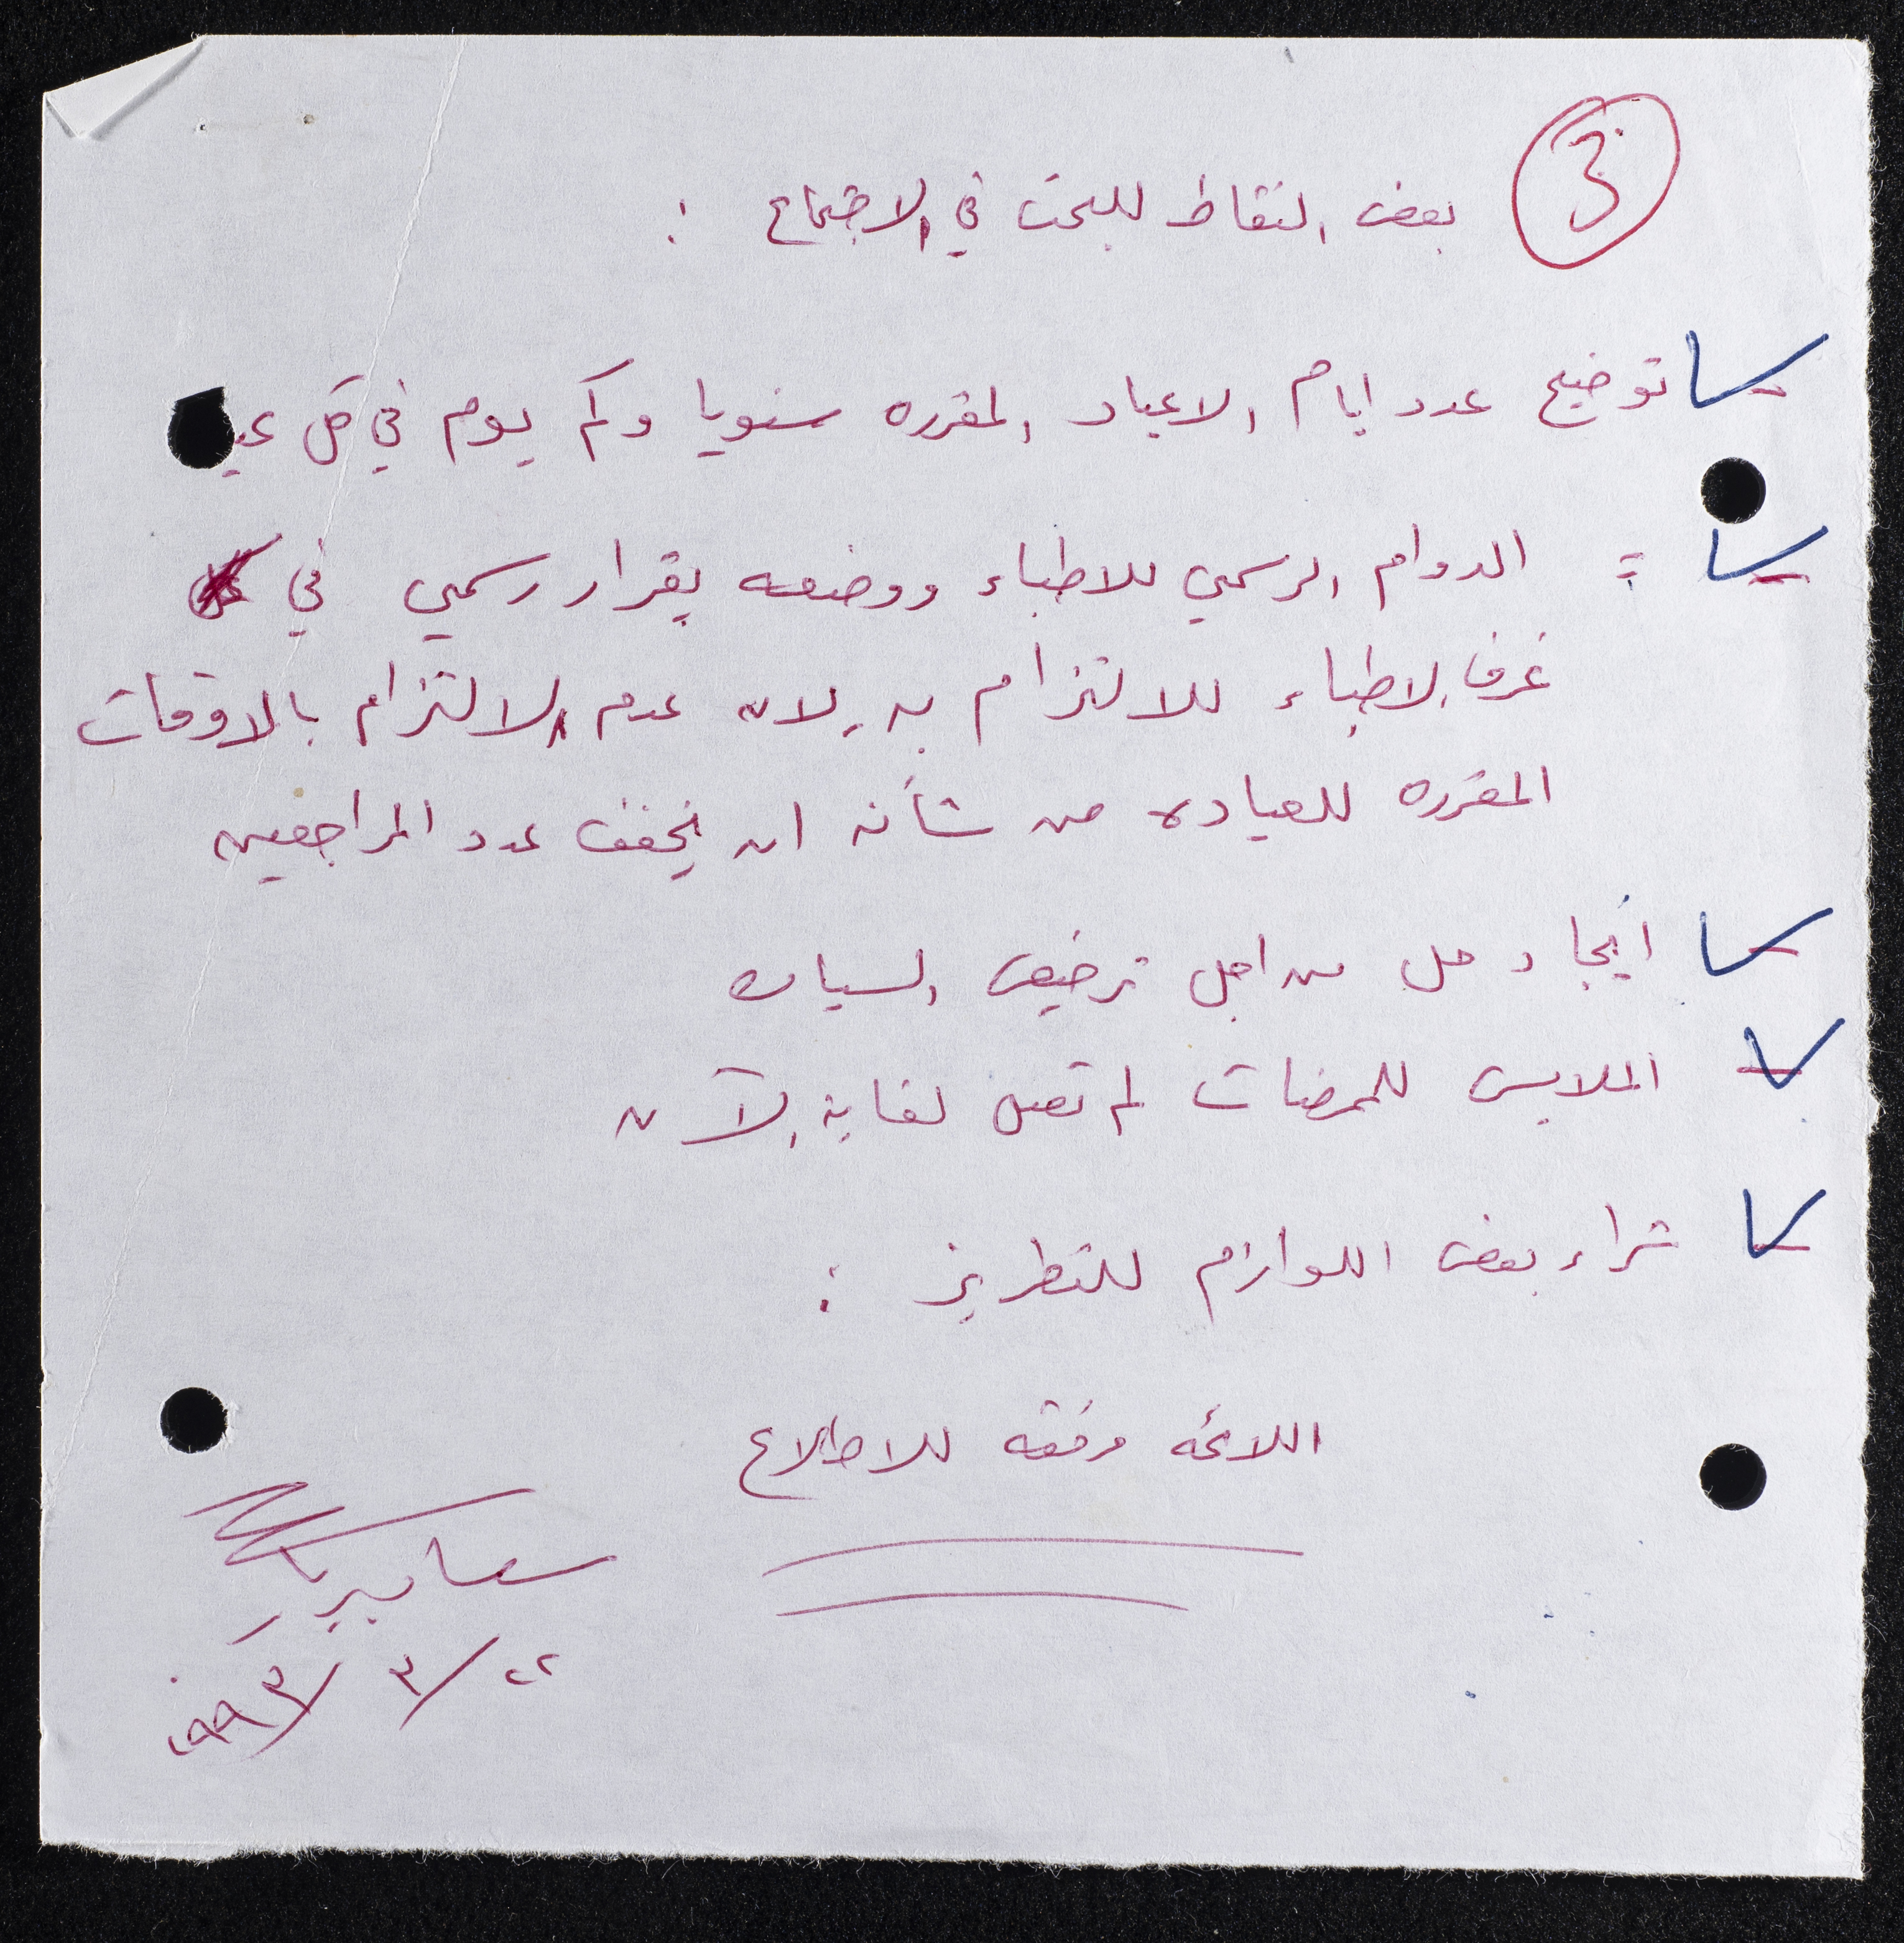 3
بعض النقاط للبحث في الاجتماع :
- توضيح عدد ايام الاعياد المقرره سنويا وكم يوم في كل عيد
- = الدوام الرسمي للاطباء ووضعه بقرار رسمي في
غرف الاطباء للالتزام به لان عدم الالتزام بالاوقات
المقرره للعياده من شأنه ان يخفف عدد المراجعين
- ايجاد حل من اجل ترخيص السياره
- الملابس للممرضات لم تصل لغاية الآن
- شراء بعض اللوازم للتطريز :
اللائحه مرفقه للاطلاع
٢٢ / ٣ / ١٩٩٣